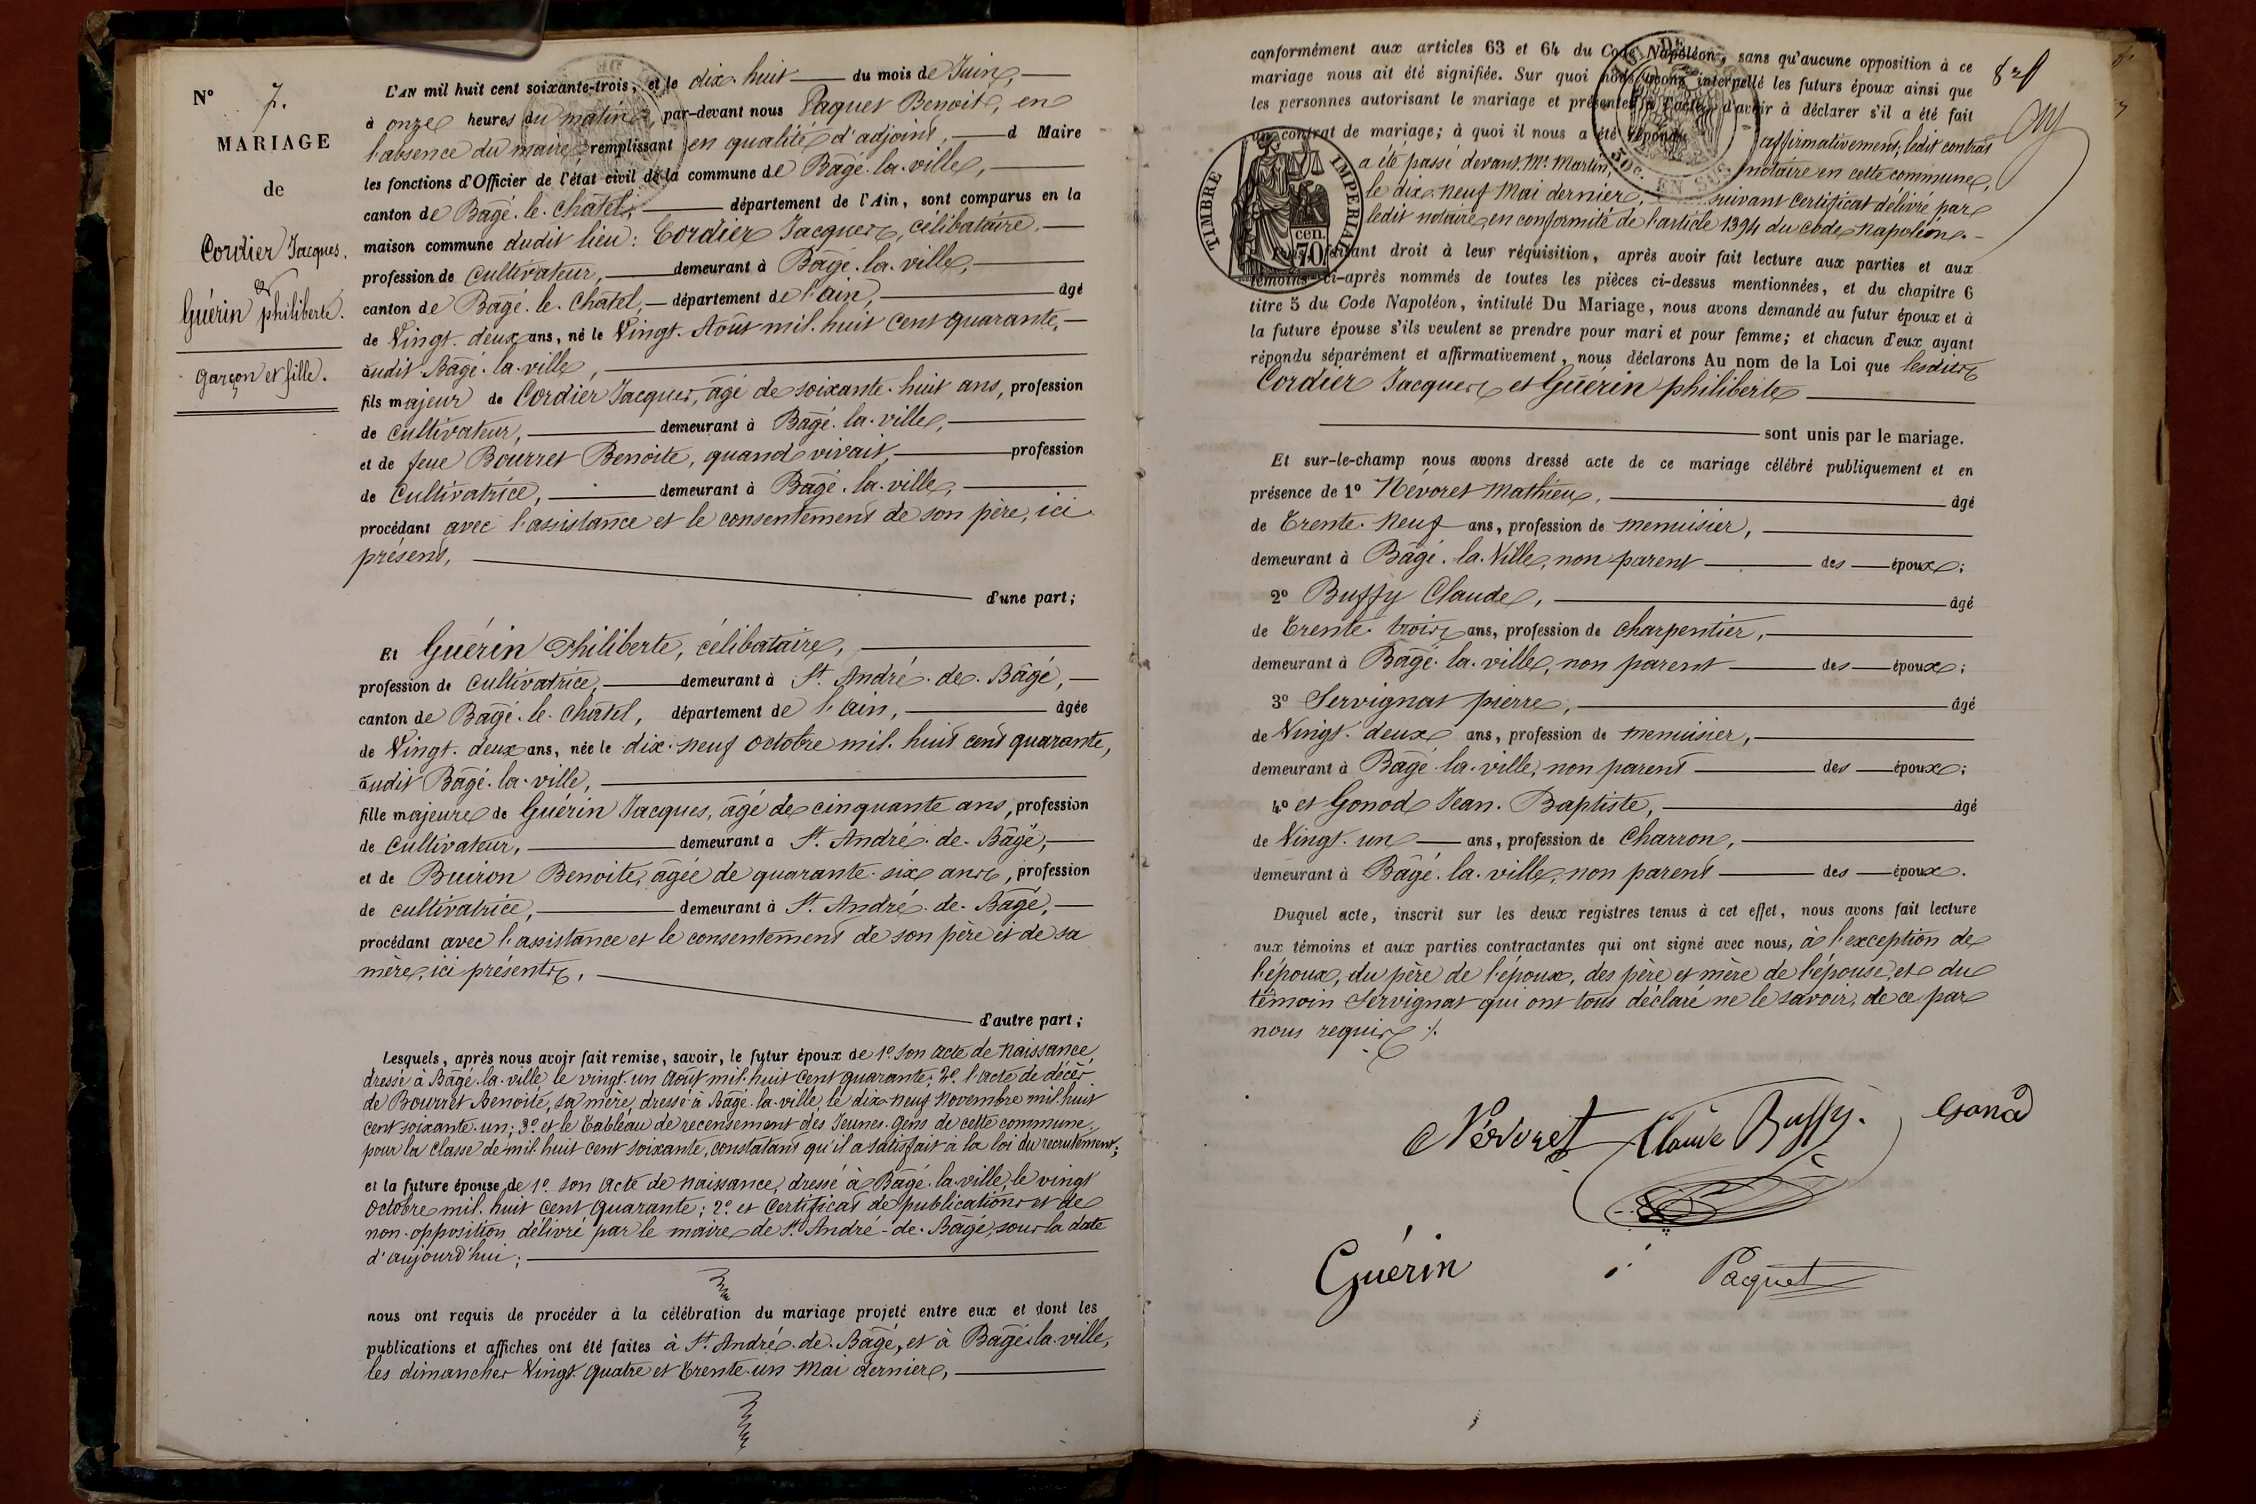 N° 7.
MARIAGE
de
Cordier Jacques.
&
Guérin philiberte.
garçon et fille.
L'AN mil huit cent soixante-trois, et le dix-huit du mois de Juin,
à onze heures du matin, par-devant nous Paquet Benoit, en
l'absence du maire, remplissant en qualité d'adjoint, d Maire
les fonctions d'Officier de l'état civil de la commune de Bâgé-la-ville,
canton de Bâgé-le-Châtel, département de l'Ain, sont comparus en la
maison commune dudit lieu: Cordier Jacques, célibataire,
profession de cultivateur, demeurant à Bâgé-la-ville,
canton de Bâgé-le-Châtel, département de l'ain, âgé
de Vingt-deux ans, né le Vingt-Août mil-huit cent quarante,
audit Bâgé-la-ville,
fils majeur de Cordier Jacques, âgé de soixante-huit ans, profession
de cultivateur, demeurant à Bâgé-la-ville,
et de feue Bourret Benoite, quand vivait, profession
de cultivatrice, demeurant à Bâgé-la-ville,
procédant avec l'assistance et le consentement de son père, ici
présent,
d'une part;
Et Guérin Philiberte, célibataire,
profession de cultivatrice, demeurant à St. André-de-Bâgé,
canton de Bâgé-le-Châtel, département de l'ain, âgée
de Vingt-deux ans, née le dix-neuf octobre mil-huit cent quarante,
audit Bâgé-la-ville,
fille majeure de Guérin Jacques, âgé de cinquante ans, profession
de cultivateur, demeurant a St. André-de-Bâgé,
et de Buiron Benoite, âgée de quarante-six ans, profession
de cultivatrice, demeurant à St. André-de-Bâgé,
procédant avec l'assistance et le consentement de son père et de sa
mère, ici présents,
d'autre part;
Lesquels, après nous avoir fait remise, savoir, le futur époux de 1° son acte de Naissance,
dressé à Bâgé-la-ville, le vingt-un août mil-huit cent quarante; 2° l'acte de décès
de Bourret Benoite, sa mère, dressé à Bâgé-la-ville, le dix-neuf Novembre mil huit
cent soixante-un; 3° et le tableau de recensement des Jeunes-Gens de cette commune,
pour la classe de mil-huit cent soixante, constatant qu'il a satisfait à la loi du recrutement;
et la future épouse, de 1° son acte de naissance, dressé à Bâgé-la-ville, le vingt
octobre mil-huit cent quarante; 2° et certificat de publications et de
non-opposition délivré par le maire de St. André-de-Bâgé, sous la date
d'aujourd'hui;
nous ont requis de procéder à la célébration du mariage projeté entre eux et dont les
publications et affiches ont été faites à St. André-de-Bâgé, et à Bâgé-la-ville,
les dimanches Vingt-quatre et trente-un Mai dernier,
conformément aux articles 63 et 64 du Code Napoléon, sans qu'aucune opposition à ce
mariage nous ait été signifiée. Sur quoi nous avons interpellé les futurs époux ainsi que
les personnes autorisant le mariage et présentes à l'acte, d'avoir à déclarer s'il a été fait
un contrat de mariage; à quoi il nous a été répondu affirmativement, ledit contrat
a été passé devant Me. Martin, notaire en cette commune,
le dix-neuf Mai dernier, suivant certificat délivré par
ledit notaire en conformité de l'article 1394 du Code Napoléon.
TIMBRE IMPERIAL
cen. 70
30c. EN SUS
Nous, faisant droit à leur réquisition, après avoir fait lecture aux parties et aux
témoins ci-après nommés de toutes les pièces ci-dessus mentionnées, et du chapitre 6
titre 5 du Code Napoléon, intitulé Du Mariage, nous avons demandé au futur époux et à
la future épouse s'ils veulent se prendre pour mari et pour femme; et chacun d'eux ayant
répondu séparément et affirmativement, nous déclarons Au nom de la Loi que lesdits
Cordier Jacques et Guérin philiberte
sont unis par le mariage.
Et sur-le-champ nous avons dressé acte de ce mariage célébré publiquement et en
présence de 1° Névoret Mathieu, âgé
de trente-neuf ans, profession de menuisier,
demeurant à Bâgé-la-Ville, non parent des époux;
2° Buffy Claude, âgé
de trente-trois ans, profession de charpentier,
demeurant à Bâgé-la-ville, non parent des époux;
3° Servignat pierre, âgé
de Vingt-deux ans, profession de menuisier,
demeurant à Bâgé-la-ville, non parent des époux;
4° et Gonod Jean-Baptiste, âgé
de Vingt-un ans, profession de charron,
demeurant à Bâgé-la-ville, non parent des époux.
Duquel acte, inscrit sur les deux registres tenus à cet effet, nous avons fait lecture
aux témoins et aux parties contractantes qui ont signé avec nous, à l'exception de
l'époux, du père de l'époux, des père et mère de l'épouse, et du
témoin Servignat qui ont tous déclaré ne le savoir, de ce par
nous requis./.
Névoret Claude Buffy. Gonod
Guérin Paquet